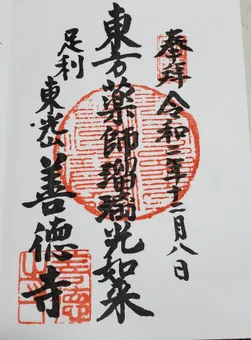 奉拝 令和二年十二月八日
東方薬師瑠璃光如来
足利 東光山 善徳寺